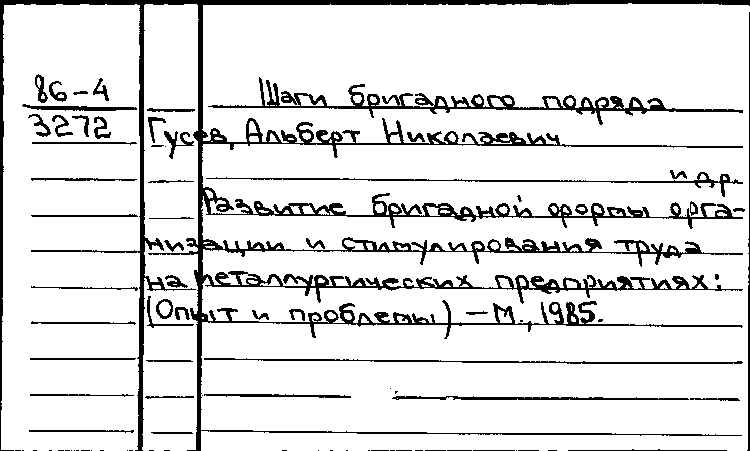 86-4
3272
Шаги бригадного подряда
Гусев, Альберт Николаевич
и др.
Развитие бригадной формы орга-
низации и стимулирования труда
на металлургических предприятиях:
(Опыт и проблемы) — М., 1985.